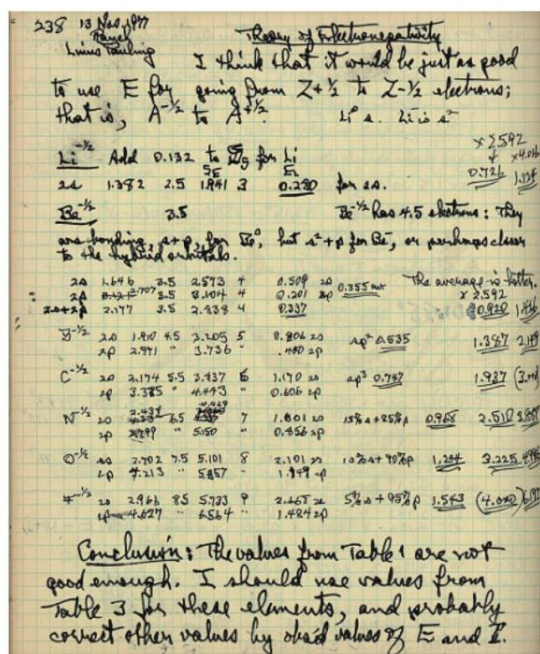 238 13 Nov 1977
Ranch
Linus Pauling
Theory of Electronegativity
I think that it would be just as good
to use E for going from Z+½ to Z-½ electrons;
that is, A⁻¹/² to A⁺¹/².
Li⁻¹/² Add 0.132 to for Li
× 2.592
0.726
2s 1.382 2.5 1.841 3 0.280 for 2s.
Be⁻¹/² 3.5 Be⁻¹/² has 4.5 electrons: They
are bonding, s+p, for Be⁰, but s²+p for Be⁻, or perhaps closer
to the hybrid orbitals.
2s 1.646 3.5 2.573 4 0.509 2s 0.355 The average is better.
3.5 4 0.201 2p × 2.592
2s+2p 2.177 3.5 2.838 4 0.337 0.920
B⁻¹/² 2s 1.910 4.5 3.205 5 0.806 2s sp² 0.535 1.387
2p 2.971 " 3.736 " 2p
C⁻¹/² 2s 2.174 5.5 3.837 6 1.170 2s sp³ 0.747 1.937
2p 3.385 " 4.443 " 0.606 2p
N⁻¹/² 2s 6.5 7 1.601 2s 15% s+85%p 0.968 2.510
2p " 5.150 " 0.856 2p
O⁻¹/² 2s 2.702 7.5 5.101 8 2.101 2s 10% s+90%p 1.244 3.225
2p 4.213 " 5.857 " 2p
F⁻¹/² 2s 2.966 8.5 5.733 9 2s 5% s+95%p 1.543 (4.000)
2p 4.627 " 6.564 " 1.484 2p
Conclusion: The values from Table 1 are not
good enough. I should use values from
Table 3 for these elements, and probably
correct other values by obs'd values of E and I.